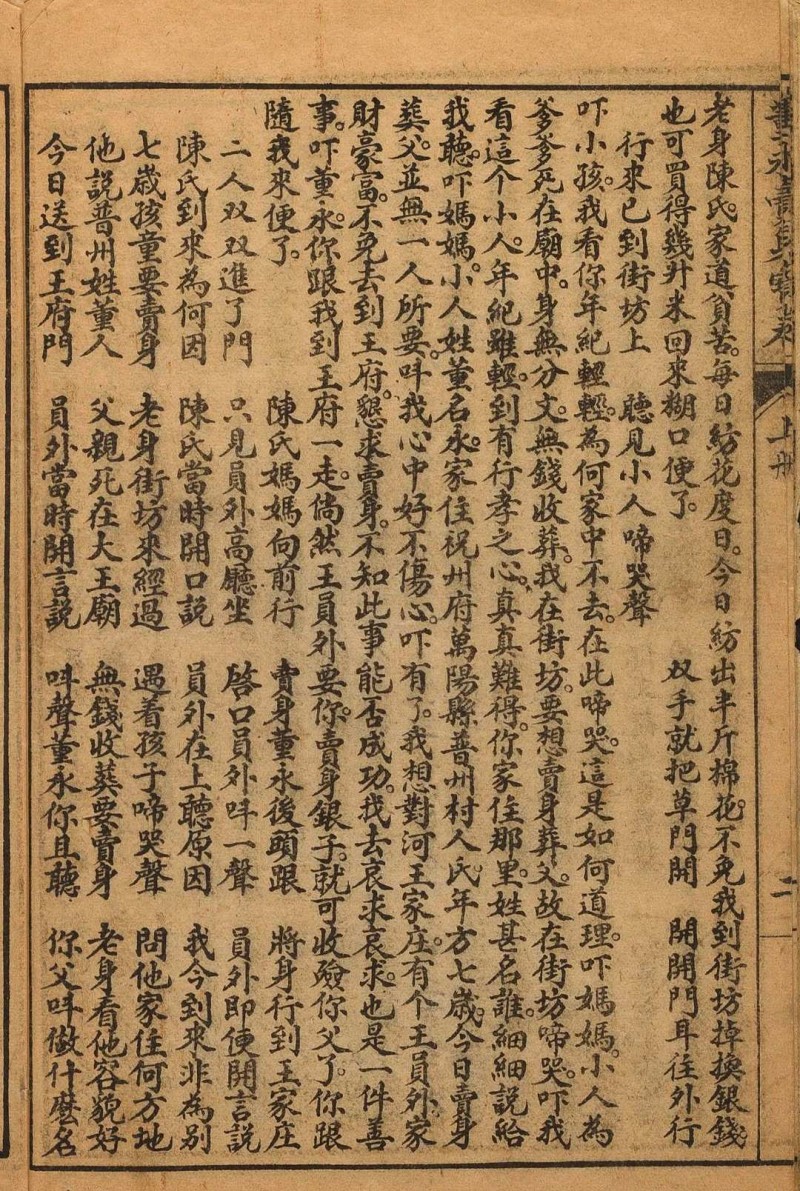 董永賣身寶卷
上册
二
老身陳氏。家道貧苦。每日紡花度日。今日紡出半斤棉花。不免我到街坊掉換銀錢
也可買得幾升米回來糊口便了。 双手就把草門開 開開門耳往外行
行來已到街坊上 聽見小人啼哭聲
吓小孩。我看你年紀輕輕。為何家中不去。在此啼哭。這是如何道理。吓媽媽。小人為
爹爹死在廟中。身無分文。無錢收葬。我在街坊。要想賣身葬父。故在街坊啼哭。吓我
看這个小人。年紀雖輕。到有行孝之心。真真難得。你家住那里。姓甚名誰。細細説給
我聽。吓媽媽。小人姓董名永。家住祝州府萬陽縣普州村人氏。年方七歲。今日賣身
葬父。並無一人所要。呌我心中好不傷心。吓有了。我想對河王家庄。有个王員外。家
財豪富。不免去到王府。懇求賣身。不知此事能否成功。我去哀求哀求。也是一件善
事。吓董永。你跟我到王府一走。倘然王員外要你。賣身銀子。就可收殮你父了。你跟
隨我來便了。 陳氏媽媽向前行 賣身董永後頭跟 將身行到王家庄
二人双双進了門 只見員外高廳坐 啓口員外呌一聲 員外即便開言説
陳氏到來為何因 陳氏當時開口説 員外在上聽原因 我今到來非為别
七歲孩童要賣身 老身街坊來經過 遇着孩子啼哭聲 問他家住何方地
他説普州姓董人 父親死在大王廟 無錢收葬要賣身 老身看他容貌好
今日送到王府門 員外當時開言説 呌聲董永你且聽 你父呌做什麽名